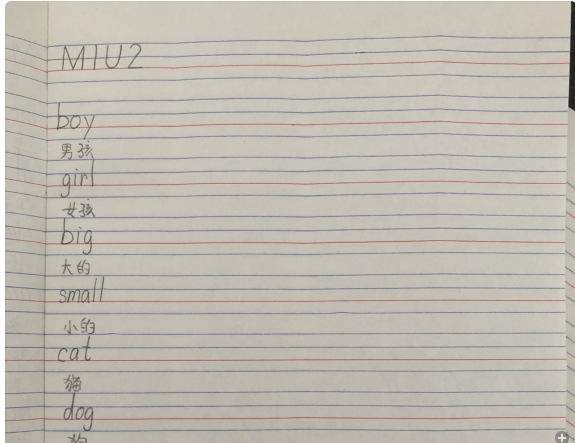 M1U2
boy
男孩
girl
女孩
big
大的
small
小的
cat
猫
dog
狗